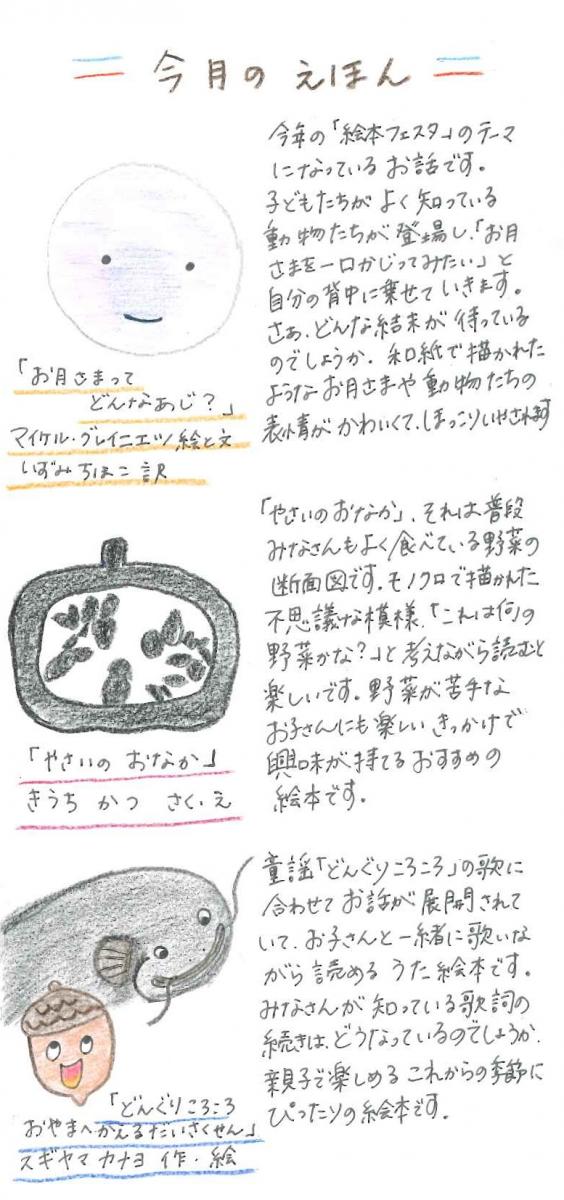 今月の えほん
今年の「絵本フェスタ」のテーマ
になっている お話です。
子どもたちが よく 知っている
動物たちが 登場し、「お月
さまを一口かじってみたい」と
自分の背中に乗せて いきます。
さあ、どんな結末が 待っている
のでしょうか。和紙で描かれた
ような お月さまや 動物たちの
表情が かわいくて、ほっこりいやされます
「お月さまって
どんなあじ?」
マイケル・グレイニエツ 絵と文
いずみ ちほこ 訳
「やさいの おなか」、それは普段
みなさんも よく 食べている野菜の
断面図です。モノクロで描かれた
不思議な模様、「これは何の
野菜かな?」と考えながら読むと
楽しいです。野菜が苦手な
お子さんにも楽しい きっかけで
興味が 持てる おすすめの
絵本です。
「やさいの おなか」
きうち かつ さく・え
童謡「どんぐりころころ」の歌に
合わせて お話が 展開されて
いて、お子さんと一緒に歌いな
がら 読める うた絵本です。
みなさんが 知っている 歌詞の
続きは、どうなっているのでしょうか。
親子で楽しめる これからの季節に
ぴったりの絵本です。
「どんぐりころころ
おやまへかえるだいさくせん」
スギヤマ カナヨ 作・絵